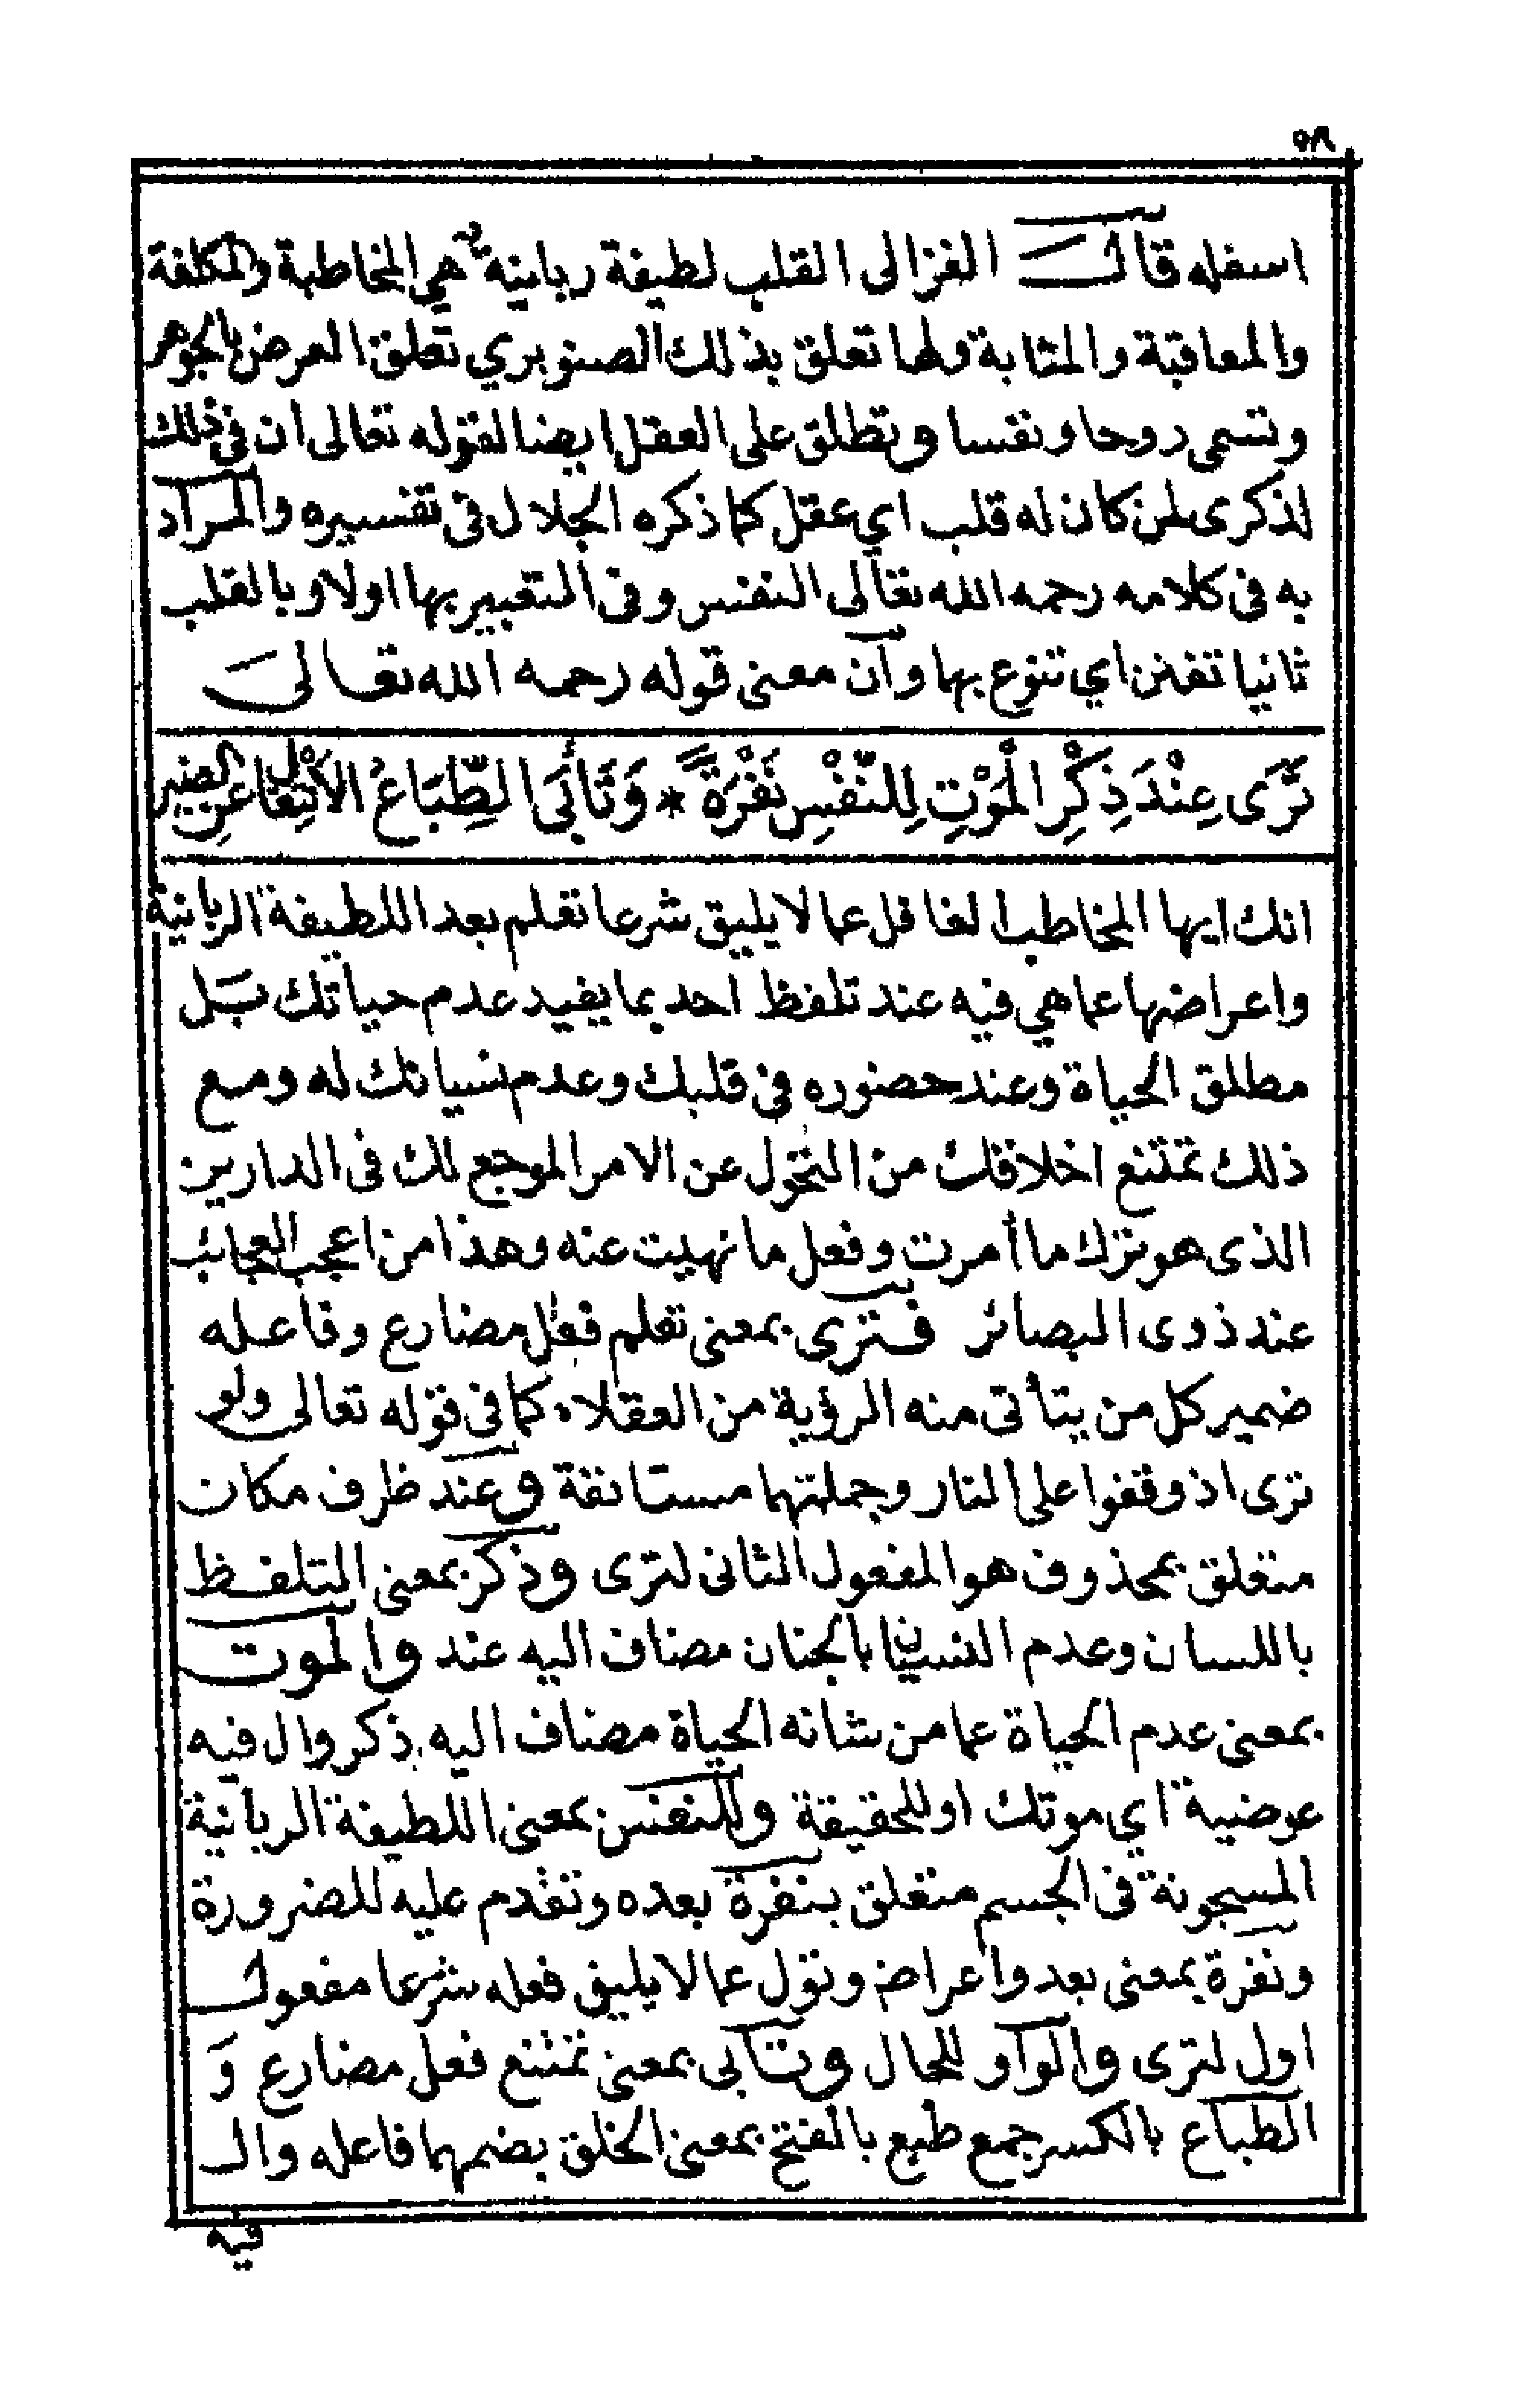 ٥٨
اسفله قال الغزالى القلب لطيفة ربانية هي المخاطبة والمكلفة
والمعاقبة والمثابة ولها تعلق بذلك الصنوبري تعلق العرض بالجوهر
وتسمى روحا ونفسا وتطلق على العقل ايضا لقوله تعالى ان فى ذلك
لذكرى لمن كان له قلب اي عقل كما ذكره الجلال فى تفسيره والمراد
به فى كلامه رحمه الله تعالى النفس وفى التعبير بها اولا وبالقلب
ثانيا تفنن اي تنوع بها وان معنى قوله رحمه الله تعالى
تَرَى عِنْدَ ذِكْرِ الْمَوْتِ لِلنَّفْسِ نَفْرَةً * وَتَأْبَى الطِّبَاعُ الاِنْتِقَالَ عَنِ الضير
انك ايها المخاطب الغافل عما لا يليق شرعا تعلم بعد اللطيفة الربانية
واعراضها عما هي فيه عند تلفظ احد بما يفيد عدم حياتك بَل
مطلق الحياة وعند حضوره فى قلبك وعدم نسيانك له ومع
ذلك تمتنع اخلاقك من التحول عن الامر الموجع لك فى الدارين
الذى هو ترك ما أمرت وفعل ما نهيت عنه وهذا من اعجب العجائب
عند ذوى البصائر فترى بمعنى تعلم فعل مضارع وفاعله
ضمير كل من يتأتى منه الرؤية من العقلاء كما فى قوله تعالى ولو
ترى اذ وقفوا على النار وجملتهما مستانفة وعند ظرف مكان
متعلق بمحذوف هو المفعول الثانى لترى وذكر بمعنى التلفظ
باللسان وعدم النسيان بالجنان مضاف اليه عند والموت
بمعنى عدم الحياة عما من شانه الحياة مضاف اليه ذكر وال فيه
عوضية اي موتك او للحقيقة وللنفس بمعنى اللطيفة الربانية
المسجونة فى الجسم متعلق بنفرة بعده وتقدم عليه للضرورة
ونفرة بمعنى بعد واعراض وتول عما لا يليق فعله شرعا مفعول
اول لترى والواو للحال وتابى بمعنى تمتنع فعل مضارع وَ
الطباع بالكسر جمع طبع بالفتح بمعنى الخلق بضمهما فاعله وال
فيه